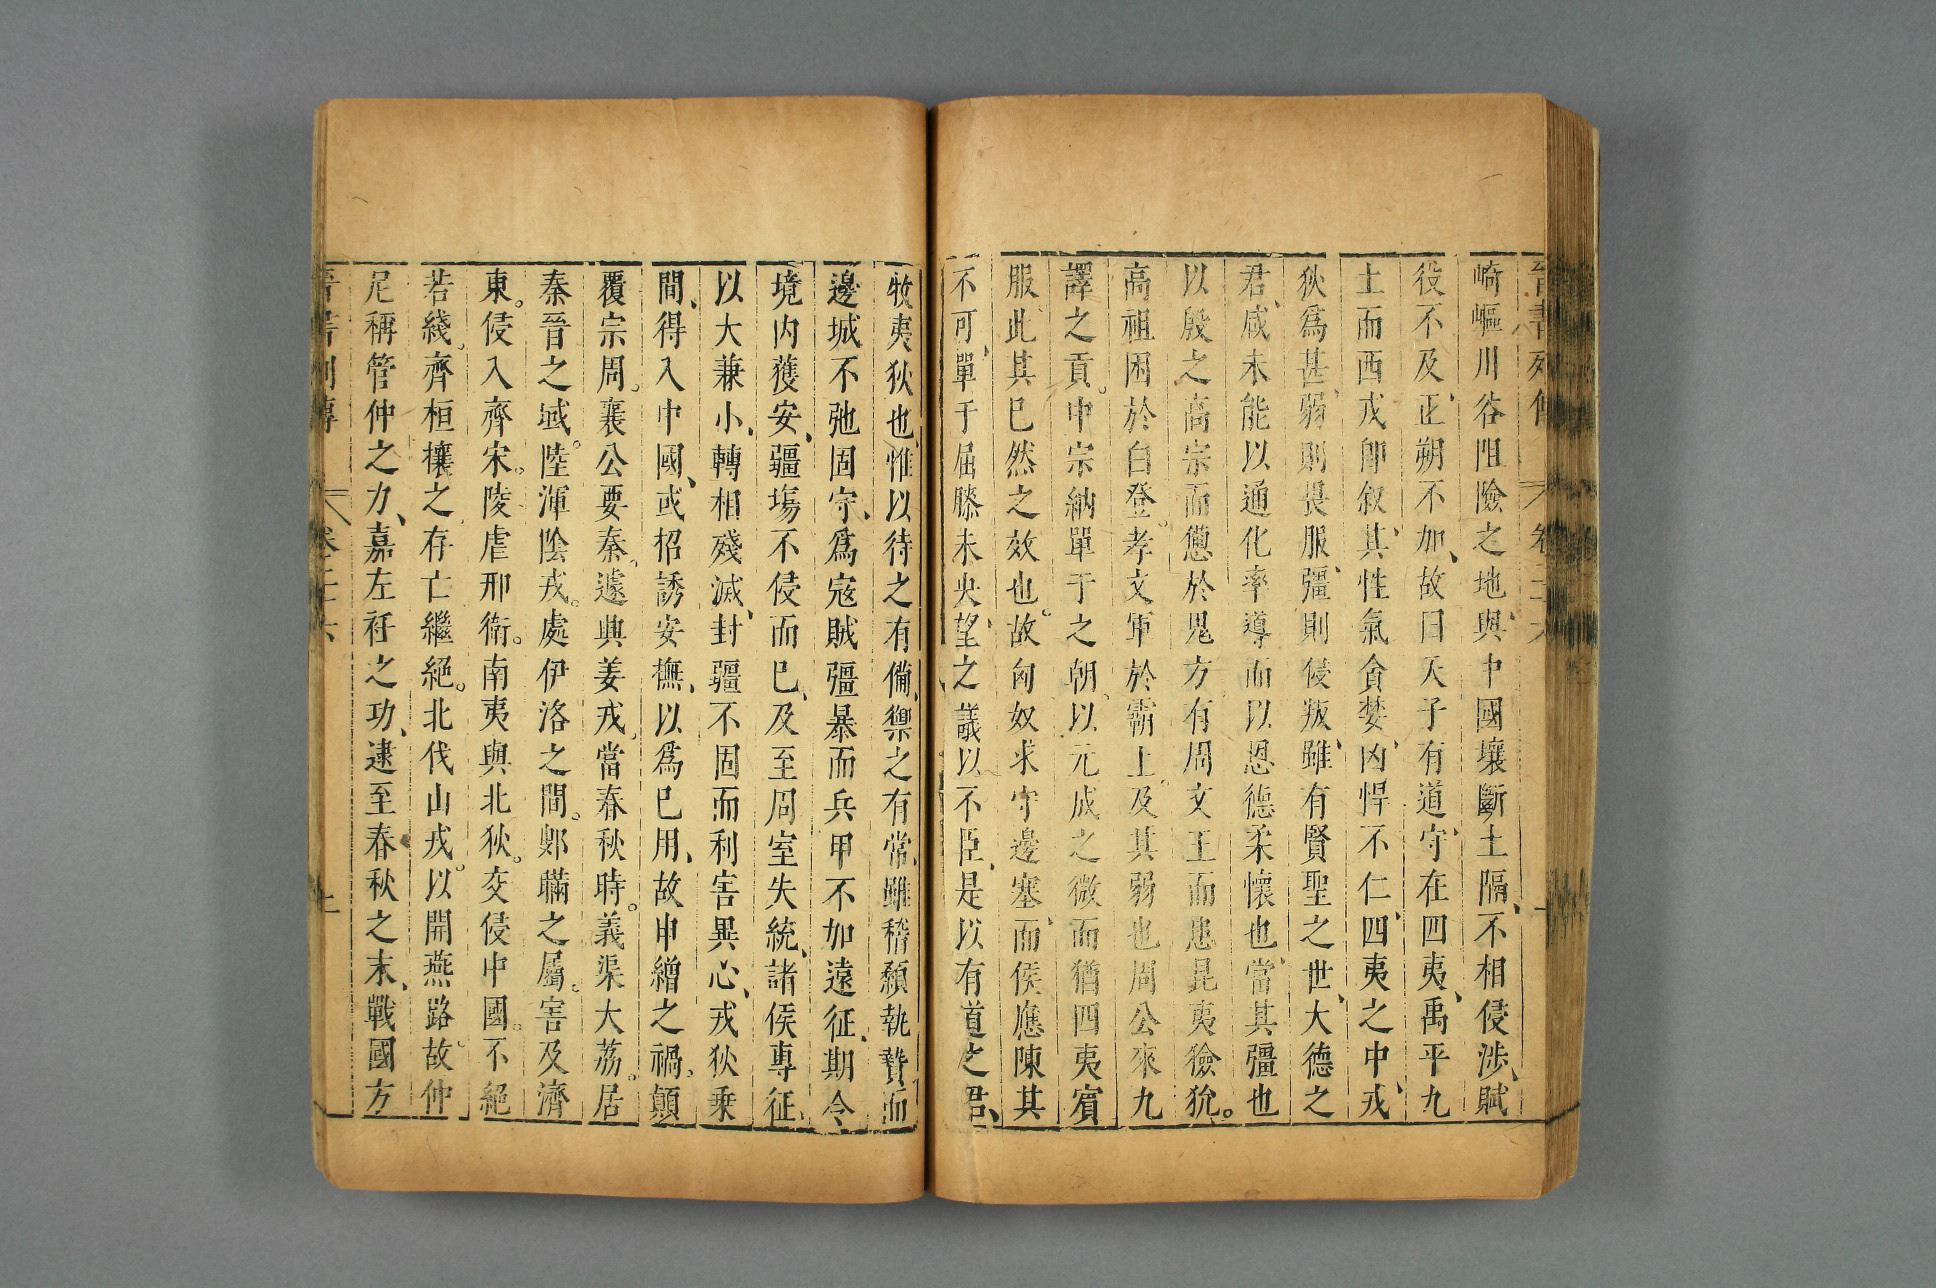 晉書列傳 卷二十六
崎嶇川谷阻險之地與中國壤斷土隔、不相侵渉、賦
役不及、正朔不加、故曰天子有道、守在四夷、禹平九
土而西戎卽叙、其性氣貪婪、凶悍不仁、四夷之中、戎
狄爲甚、弱則畏服、彊則侵叛、雖有賢聖之世、大德之
君、咸未能以通化率導而以恩德柔懷也、當其彊也
以殷之高宗而憊於鬼方、有周文王而患昆夷獫狁。
高祖困於白登。孝文軍於霸上。及其弱也周公來九
譯之貢。中宗納單于之朝、以元成之微而猶四夷賓
服、此其已然之效也。故匈奴求守邊塞、而侯應陳其
不可、單于屈膝未央、望之議以不臣、是以有道之君、
牧夷狄也、惟以待之有備、禦之有常、雖稽顙執贄而
邊城不弛固守、爲寇賊彊暴而兵甲不加遠征、期令
境内獲安、疆塲不侵而已、及至周室失統、諸侯專征、
以大兼小、轉相殘滅、封疆不固而利害異心、戎狄乗
間、得入中國、或招誘安撫、以爲已用、故申繒之禍、顛
覆宗周。襄公要秦。遽興姜戎。當春秋時。義渠大荔。居
秦晉之域。陸渾陰戎。處伊洛之間。鄋瞞之屬。害及濟
東。侵入齊宋。陵虐邢衛。南夷與北狄。交侵中國。不絕
若綫。齊桓攘之存亡繼絕。北伐山戎。以開燕路。故仲
尼稱管仲之力、嘉左衽之功、逮至春秋之末、戰國方
晉書列傳 卷二十六 上